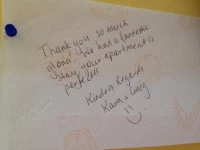 Thank you so much
We had a fantastic
stay your apartment is
perfect!
Kindest Regards
Kara + Craig
:)